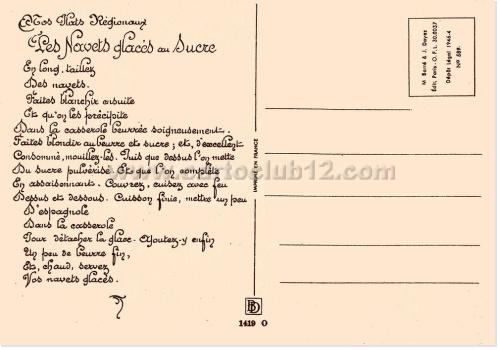 Nos Plats Régionaux
Les Navets glacés au Sucre
En long, taillez
Des navets.
Faites blanchir ensuite
Et qu'on les précipite
Dans la casserole beurrée soigneusement.
Faites blondir au beurre et sucre ; et, d'excellent
Consommé, mouillez-les. Puis que dessus l'on mette
Du sucre pulvérisé. Et que l'on complète
En assaisonnant. Couvrez, cuisez avec feu
Dessus et dessous. Cuisson finie, mettre un peu
D'espagnole
Dans la casserole
Pour détacher la glace. Ajoutez-y enfin
Un peu de beurre fin,
Et, chaud, servez
Vos navets glacés.
IMPRIMÉ EN FRANCE
M. Barré & J. Dayez
Édit, Paris - O.P.L. 30.0037
Dépôt Légal 1946-4
N° 589.
BD
1419 O
www.cartoclub12.com